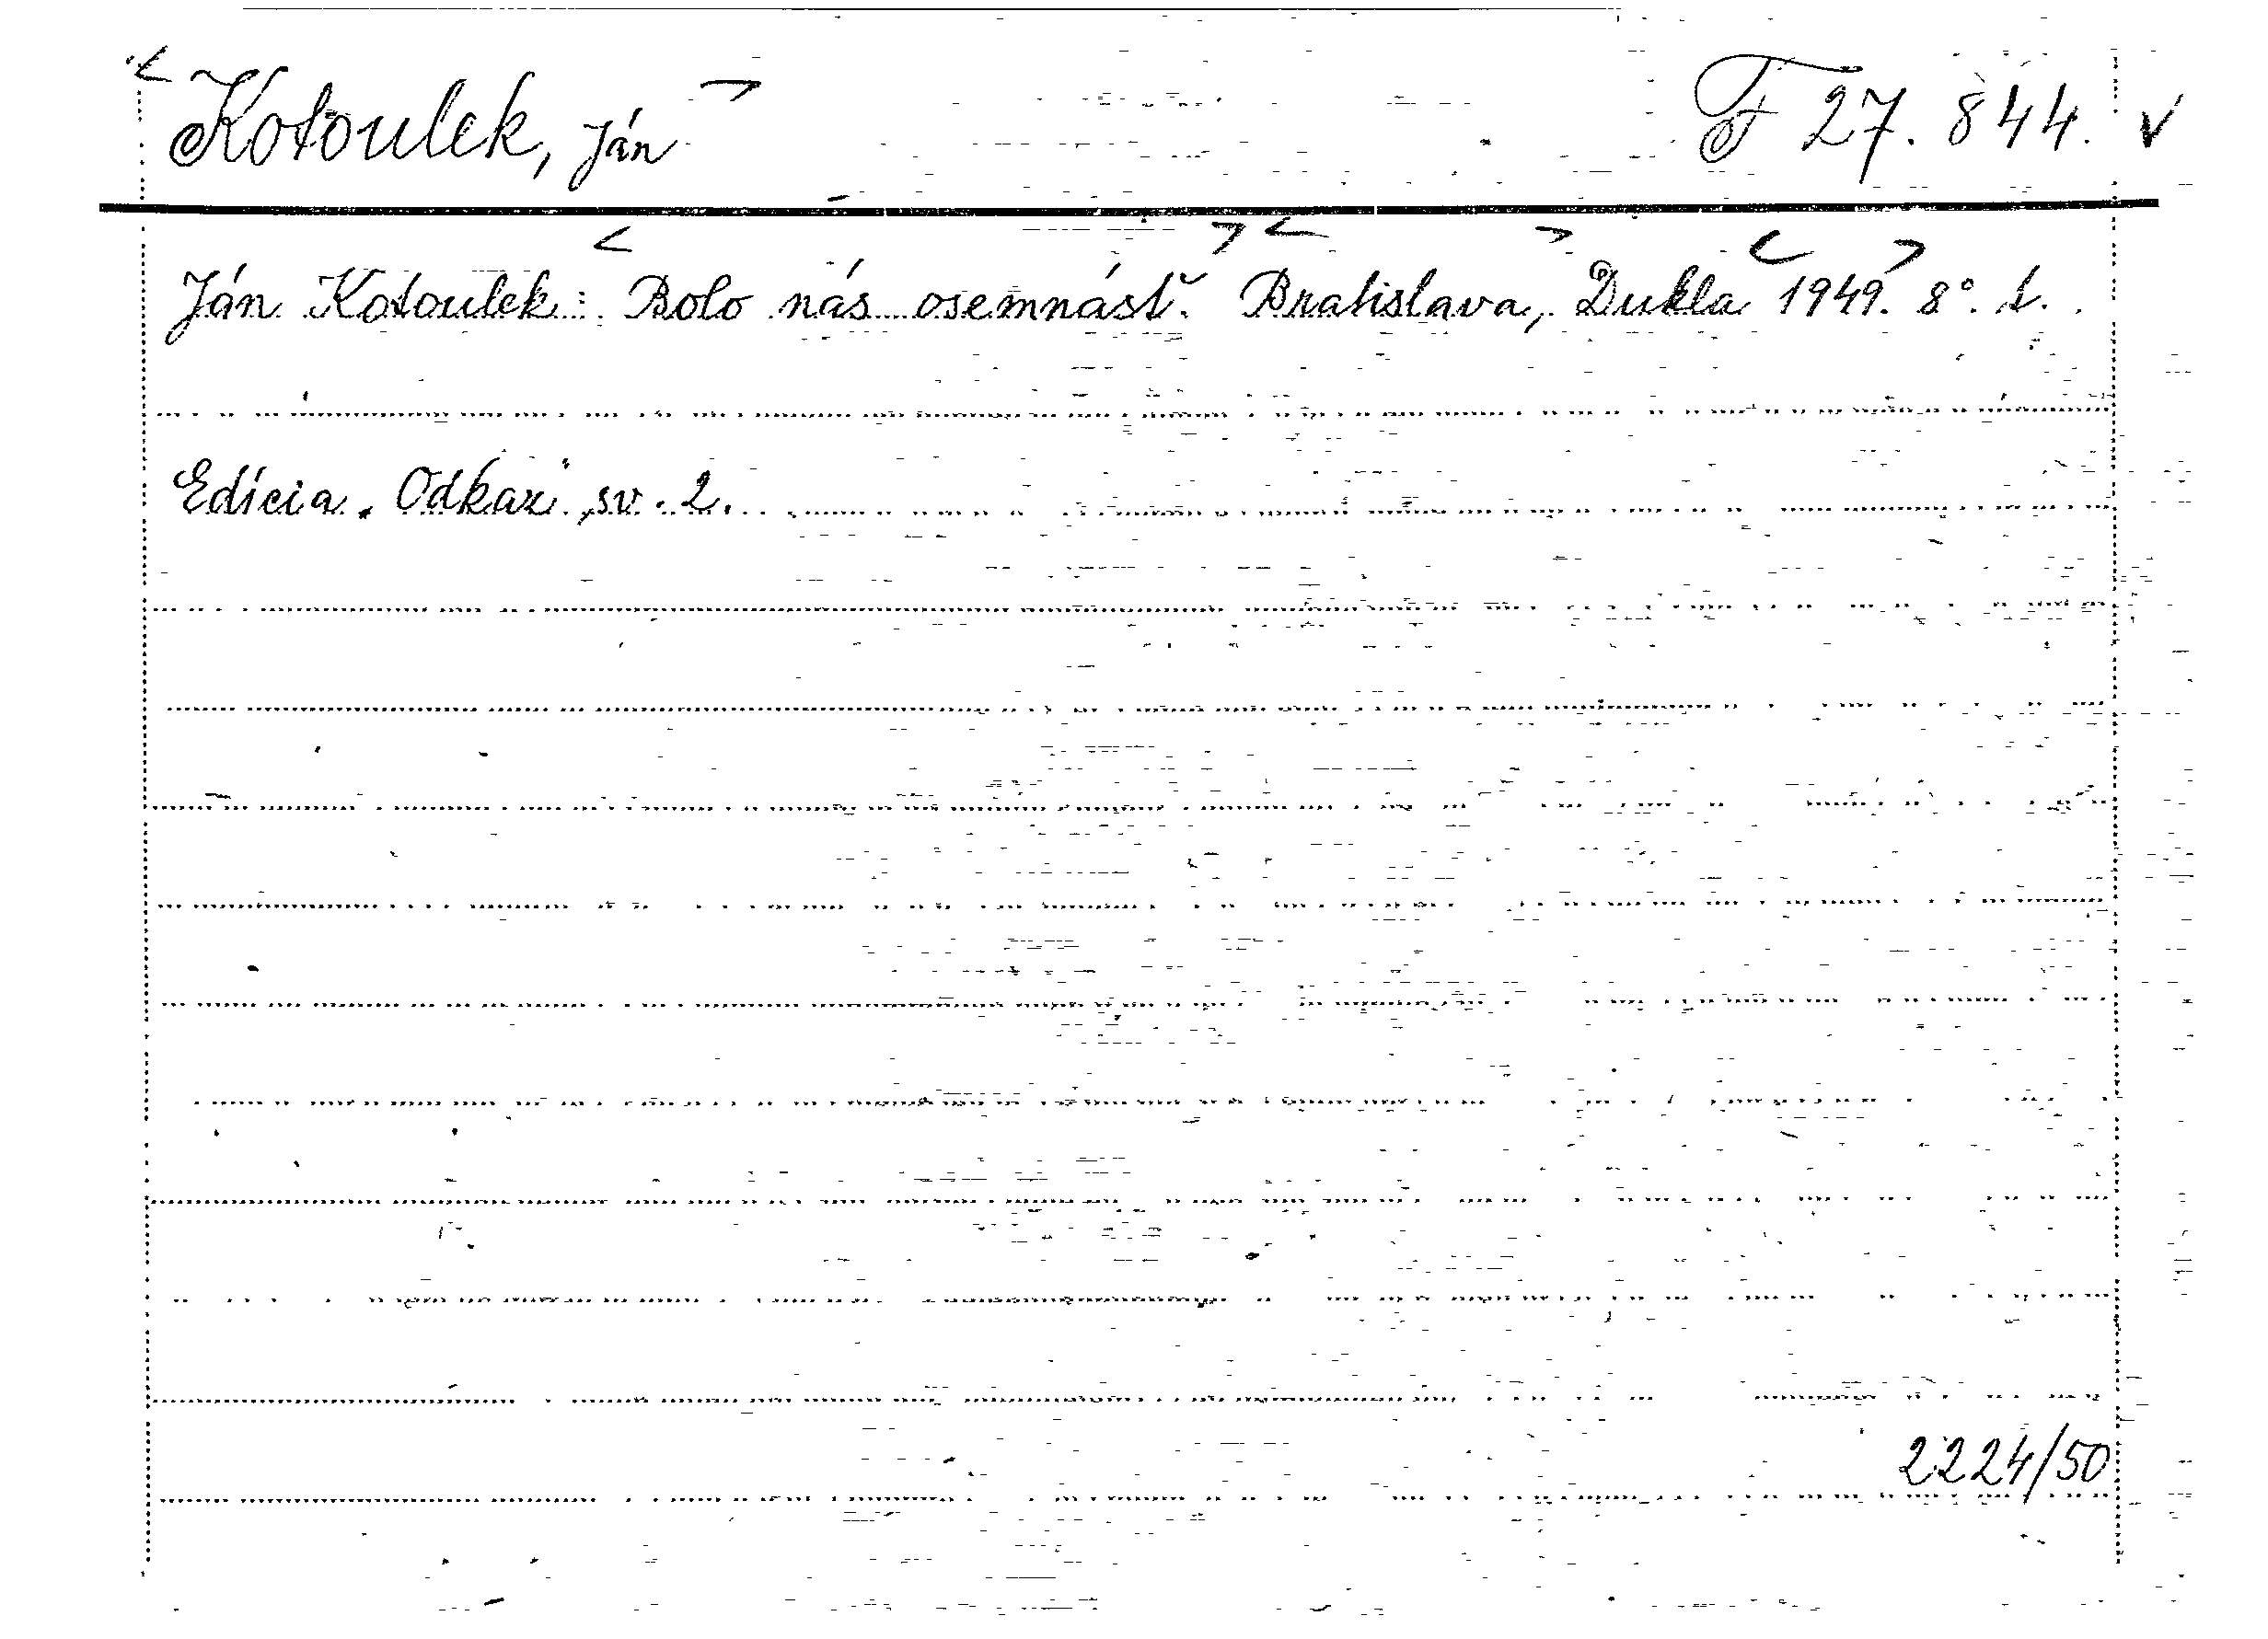 Kotoulek, Ján F 27.844. v
Ján Kotoulek: Bolo nás osemnásť. Bratislava, Dukla 1949. 8°. s.
Edícia. Odkazi, sv. 2.
2224/50